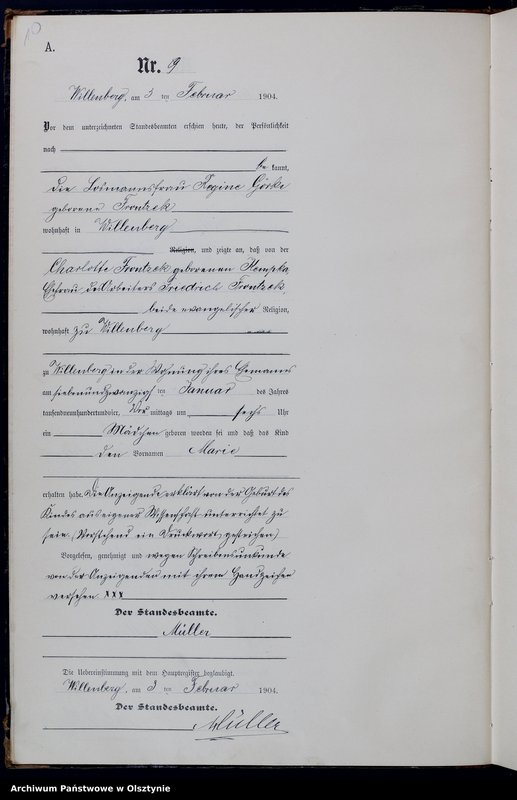 10
A.
Nr. 9
Willenberg, am 3 ten Februar 1904.
Vor dem unterzeichneten Standesbeamten erschien heute, der Persönlichkeit
nach
be kannt,
die Losmannsfrau Regine Görke
geborene Frontzek
wohnhaft in Willenberg
Religion, und zeigte an, daß von der
Charlotte Frontzek geborenen Stempka,
Ehefrau des Arbeiters Friedrich Frontzek,
beide evangelischer Religion,
wohnhaft zu Willenberg
zu Willenberg in der Wohnung ihres Ehemanns
am siebenundzwanzigsten Januar des Jahres
tausendneunhundertundvier, Vor mittags um sechs Uhr
ein Mädchen geboren worden sei und daß das Kind
den Vornamen Marie
erhalten habe. Die Anzeigende erklärt von der Geburt des
Kindes aus eigener Wissenschaft unterrichtet zu
sein. (Vorstehend ein Druckwort gestrichen)
Vorgelesen, genehmigt und wegen Schreibensunkunde
von der Anzeigenden mit ihrem Handzeichen
versehen XXX
Der Standesbeamte.
Müller
Die Uebereinstimmung mit dem Hauptregister beglaubigt.
Willenberg, am 3 ten Februar 1904.
Der Standesbeamte.
Müller
Archiwum Państwowe w Olsztynie